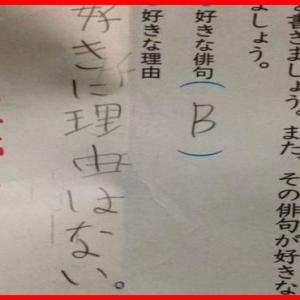 を書きましょう。また、その俳句が好きな
ましょう。
好きな俳句(B)
好きな理由
好きに理由はない。